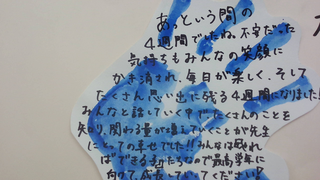 あっという間の
4週間でしたね。不安だった
気持ちもみんなの笑顔に
かき消され、毎日が楽しく、そして
たくさん思い出に残る4週間になりました!!
みんなと話していく中で たくさんのことを
知り、関わる量が増えていくことが先生
にとっての幸せでした!!みんなは やれ
ばできる子たちなので最高学年に
向けて、成長していってください!